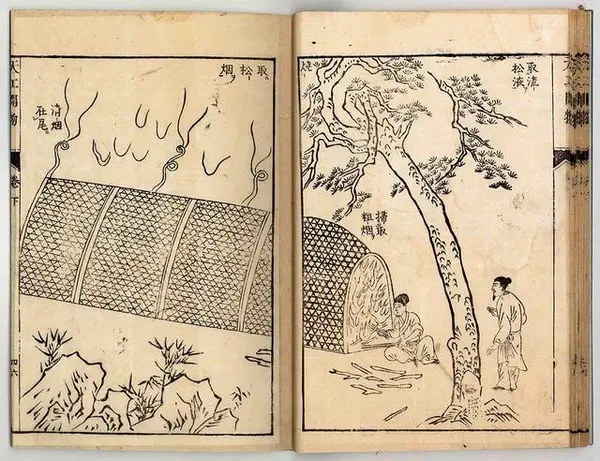 取流
松液
燒取松烟
掃取
粗烟
清烟
在尾
天工開物
卷下
四六